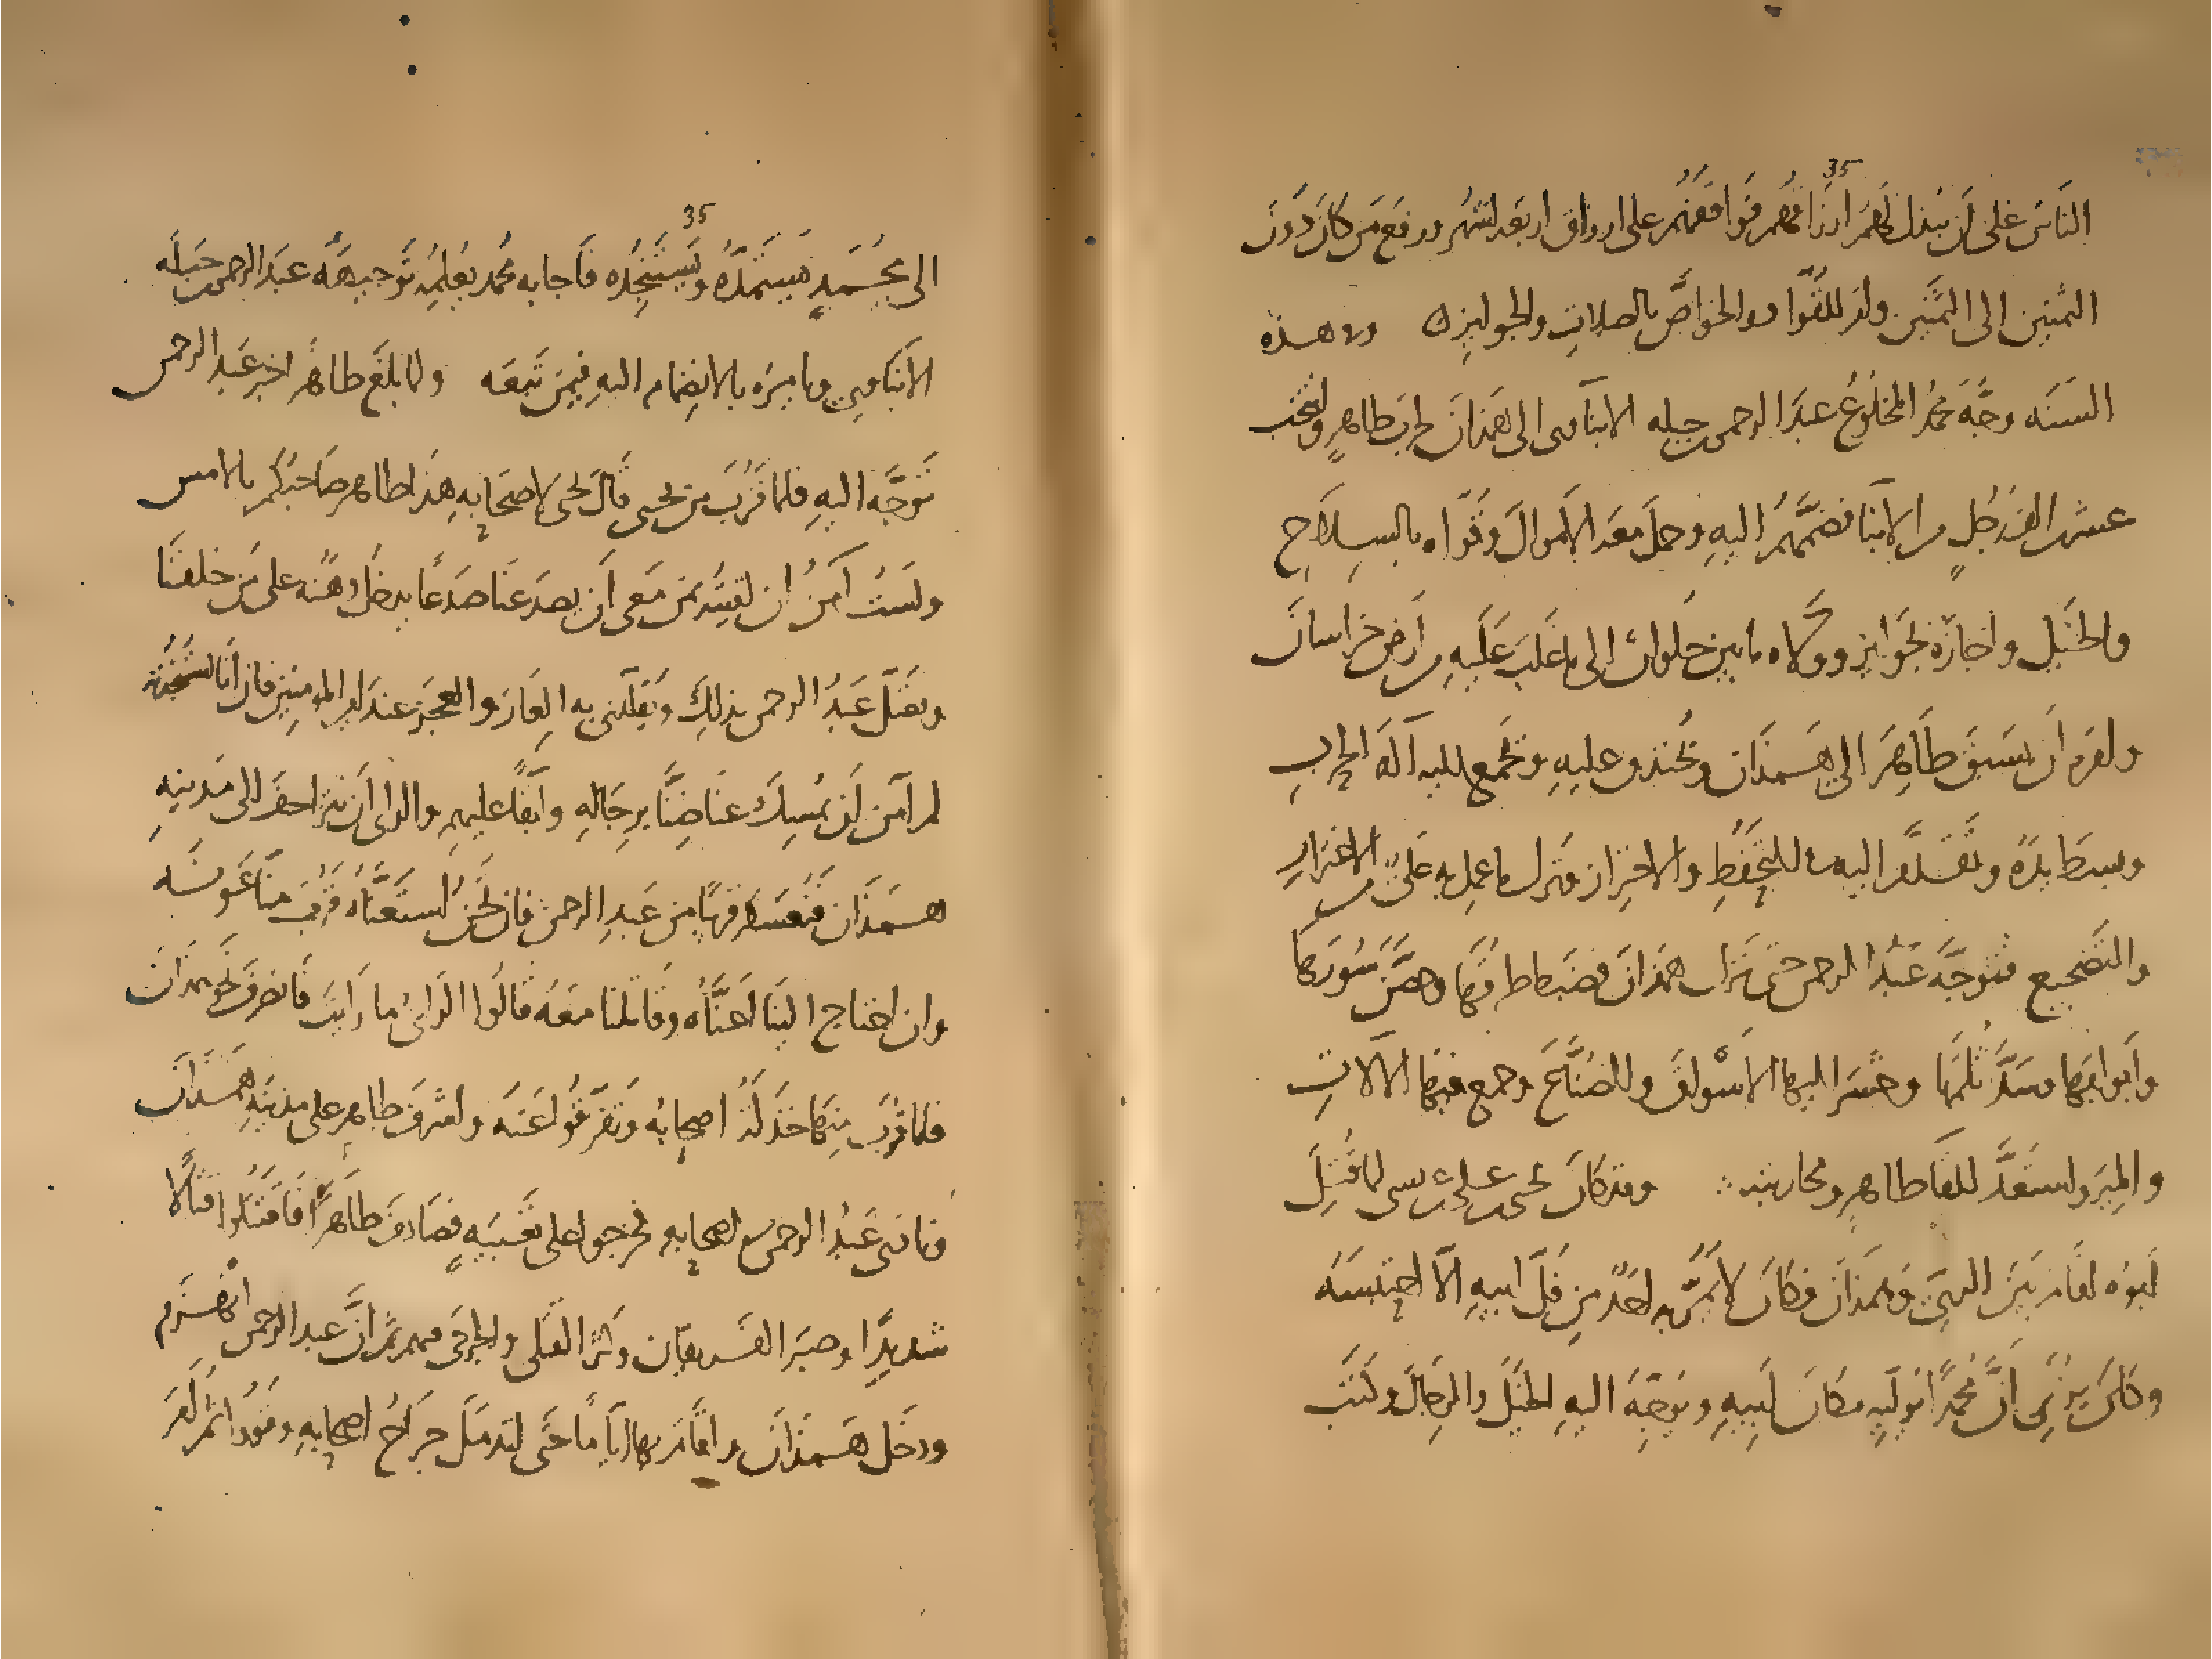 35
الناس على أن يبذل لهم ارزاقهم فوافقهم على ارزاق اربعة اشهر ورفع من كان دون
الثمنين الى الثمنين وامر للقواد والخواص بالصلات والجوايز وفي هذه
السنه وجه محمد المخلوع عبد الرحمن جبله الابناوى الى همذان لحرب طاهر وانتخب
عشرين الف رجل من الابنا فضمهم اليه وحمل معه الاموال وقواه بالسلاح
والخيل واجازه بجوايز وولاه ما بين حلوان الى ما غلب عليه من ارض خراسان
وامره أن يسبق طاهرا الى همذان ويخندق عليه ويجمع اليه آلة الحرب
وبسط يده وتقدم اليه في التحفظ والاحتراز وترك ما عمل به على من الاغترار
والتضجيع فتوجه عبد الرحمن حتى نزل همذان فضبط طرقها وحصن سورها
وابوابها وسد ثلمها وحشر اليها الاسواق والصناع وجمع فيها الآلات
والمير واستعد للقا طاهر ومحاربته وقد كان يحيى بن على بن عيسى لما قتل
ابوه اقام بين الرى وهمذان فكان لا يمر به احد من فل ابيه الا احتبسه
وكان يرى أن محمدا يوليه مكان ابيه ويوجه اليه الخيل والرجال وكتب
35
الى محمد يستمده ويستنجده فاجابه محمد يعلمه توجيهه عبد الرحمن جبله
الابناوى ويامره بالانضمام اليه فيمن تبعه ولما بلغ طاهرا خبر عبد الرحمن
توجه اليه فلما قرب من يحيى قال يحيى لاصحابه هذا طاهر صاحبكم بالامس
ولست آمن ان لقيته بمن معى أن يصدعنا صدعا يدخل وهنه على من خلفنا
ويعتل عبد الرحمن بذلك ويقلدنى به العار والعجز عند امير المومنين فان انا استنجدته
لم آمن أن يمسك عنا ضنا برجاله وابقا عليهم والراى أن نتزاحف الى مدينه
همذان فنعسكر قريبا من عبد الرحمن فان نحن استعناه قرب منا عونه
وان احتاج الينا اعناه وقاتلنا معه قالوا الراى ما رايت فانصرف نحو همذان
فلما قرب منها خذله اصحابه وتفرقوا عنه واشرف طاهر على مدينه همذان
ونادى عبد الرحمن في اصحابه فخرجوا على تعبيه فصادف طاهرا فاقتتلوا قتالا
شديدا وصبر الفريقان وكثر القتلى والجرحى فيهم ثم أن عبد الرحمن انهزم
ودخل همذان واقام بها اياما حتى اندمل جراح اصحابه وقووا ثم امر